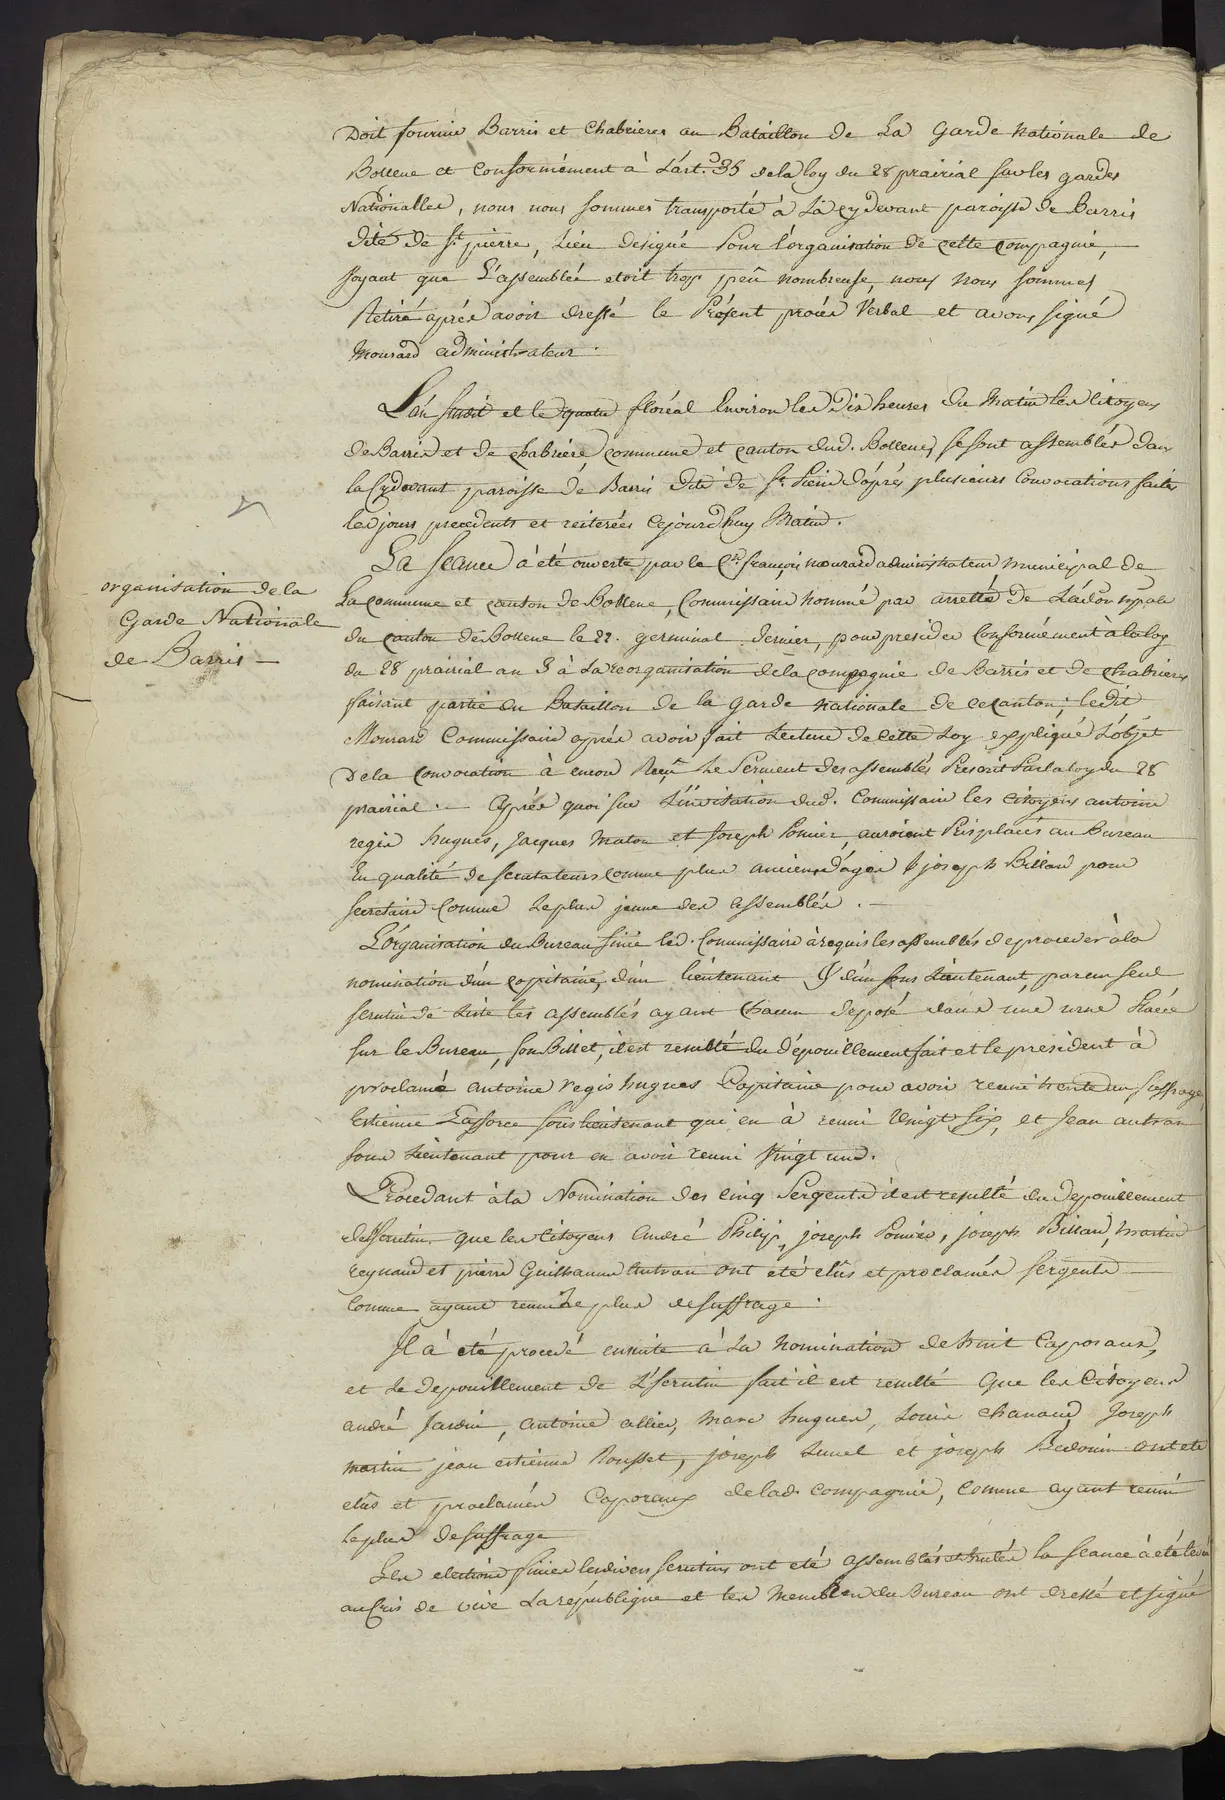 Doit fournir Barris et Chabrieres au Bataillon de La Garde Nationale de
Bollene et Conformément à L'art. 35 de la loy du 28 prairial sur les gardes
Nationalles, nous nous sommes transporté à La cy devant paroisse de Barris
dite de St. pierre, Lieu designé Pour l'organisation de cette compagnie,
Voyant que L'assemblée etoit trop peû nombreuse, nous nous sommes
Retiré après avoir dressé le Présent procès Verbal et avons signé
Mourard administrateur.
L'an susdit et le floréal Environ les Dix heures du Matin les Citoyens
de Barris et de Chabriere Commune et canton dud. Bollene, se sont assemblés dans
la Cydevant paroisse de Barris dite de St. Pierre d'après plusieurs Convocations faites
les jours precedents et reiterées cejourd'huy Matin.
La seance à été ouverte par le Cn. françois mourard administrateur municipal de
organisation de la
Garde Nationale
de Barris —
La commune et canton de Bollene, Commissaire nommé par arretté de L'adon. mpale
du canton de Bollene le 22. germinal dernier, pour presider Conformément à la loy
du 28 prairial an 3 à La reorganisation de la compagnie de Barris et de Chabrieres
faisant partie du Bataillon de la garde nationale de ce canton; ledit
Mourard Commissaire après avoir fait Lecture de cette Loy expliqué L'objet
De la convocation à encore Reçû Le Serment des assemblés Prescrit Par la loy du 28
prairial. — Après quoi sur L'invitation dud. Commissaire les Citoyens antoine
regis hugues, Jacques Maton et Joseph Pomier, auroient Pris place au Bureau
En qualité de scrutateurs comme plus anciens d'ages & joseph Billard pour
secretaire Comme Le plus jeune des assemblés. —
L'organisation du Bureau finie led. Commissaire à requis les assemblés de proceder à la
nomination d'un capitaine, d'un lieutenant & d'un sous Lieutenant, par un seul
scrutin de Liste les assemblés ayant chacun deposé dans une urne Placée
sur le Bureau, son Billet, il est resulté du dépouillement fait et le president à
proclamé antoine regis hugues Capitaine pour avoir reuni trente un suffrages
Estienne Lafforce sous lieutenant qui en à reuni Vingt Six, et Jean autran
sous Lieutenant pour en avoir reuni Vingt une.
Procedant à la Nomination des Cinq Sergents il est resulté du depouillement
de Scrutin que les Citoyens André Philip, joseph Pomier, joseph Billard, martin
reynaud et pierre Guilhaume Autran ont été elûs et proclamés sergents —
Comme ayant reuni le plus de suffrage.
Il à été procedé ensuite à La Nomination de huit Caporaux,
et Le depouillement de L'Scrutin fait il est resulté Que les Citoyens
andré Jardin, antoine allier, Marc hugues, Louis Chanaud, Joseph
martin jean estienne Rousset, joseph Lunel et joseph Bedouin ont été
elûs et proclamés Caporaux de lad. compagnie, Comme ayant reuni
le plus de suffrage
Les elections finies les divers scrutins ont été assemblés et brulés la seance à été levée
au Cris de vive La république et les Membres du Bureau ont dressé et signé